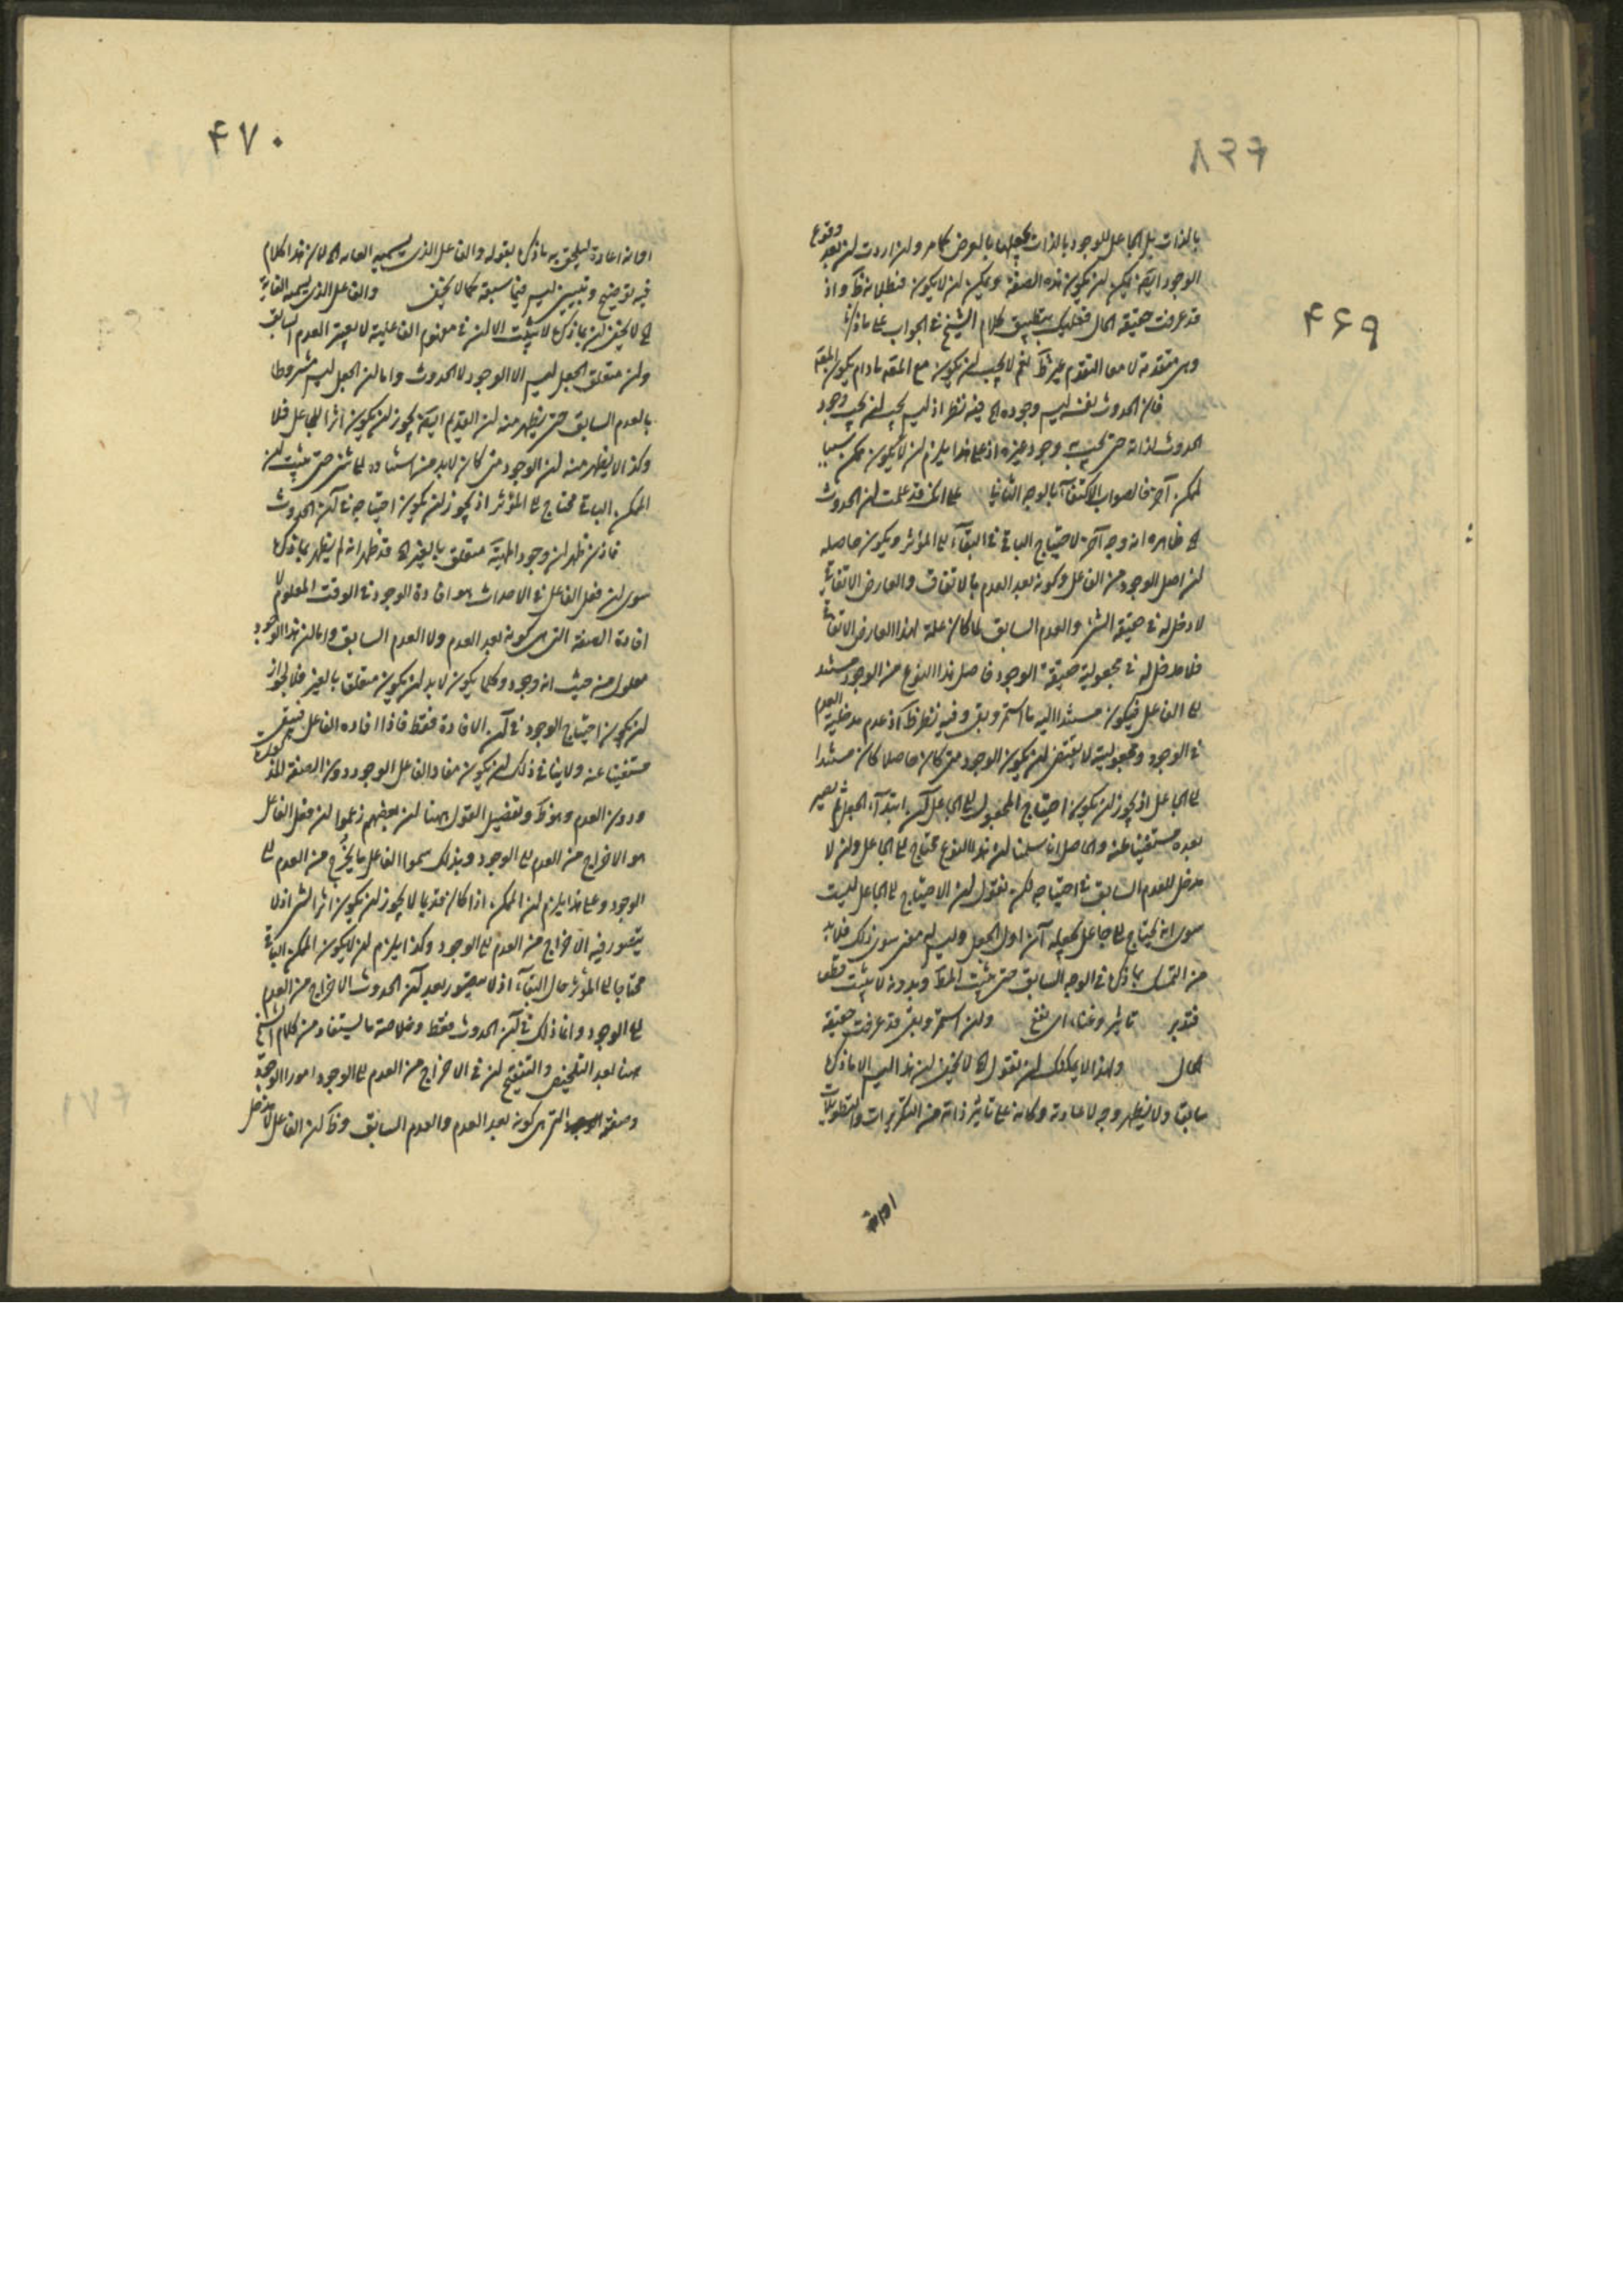 ۴۶۹
بالذات بل الجاعل للوجود بالذات يجعلها بالعرض كما مر وان اردت ان بعد وقوع
الوجود ايضا يمكن ان يكون هذه الصفة ويمكن ان لا يكون فبطلانه ظ واذ
قد عرفت حقيقة الحال فعليك بتطبيق كلام الشيخ في الجواب على ما ذكرنا
وهي متقدمة لا معا التقدم غير ظ نعم لا يجب ان يكون مع المتقدم مادام يكون
فان الحدوث نفسه ليس وجوده الخ فيه نظر اذ ليس يجب ان يجب وجود
الحدوث لذاته حتى يجب وجود غيره اذ على هذا يلزم ان لا يكون ممكن سببا
لممكن آخر فالصواب الاكتفاء بالوجه الثاني على انك قد علمت ان الحدوث
الخ ظاهره انه وجه آخر لاحتياج الباقي في البقاء الى المؤثر ويكون حاصله
ان اصل الوجود من الفاعل وكونه بعد العدم بالاتفاق والعارض الاتفاقي
لا دخل له في حقيقة الشئ والعدم السابق لما كان علة لهذا العارض الاتفاقي
فلا مدخل له في مجعولية حقيقة الوجود فاصل هذا النوع من الوجود مستند
الى الفاعل فيكون مستندا اليه ما استمر وبقى وفيه نظر ظ اذ عدم مدخلية العدم
في الوجود ومجعوليته لا يقتضى ان يكون الوجود متى كان حاصلا كان مستندا
الى الجاعل اذ يجوز ان يكون احتياج المجعول الى الجاعل آن ابتداء الجعل ثم يصير
بعده مستغنيا عنه والحاصل انا سلمنا ان هذا النوع محتاج الى الجاعل وان لا
مدخل للعدم السابق في احتياجه لكن نقول ان الاحتياج الى الجاعل ليست
سوى انه يحتاج الى جاعل يجعله آن اول الجعل وليس له معنى سوى ذلك فلابد
من التمسك بما ذكر في الوجه السابق حتى يثبت المط وبدونه لا يثبت قط
فتدبر تاثير وغناء اى نفع وان استمر وبقى قد عرفت حقيقة
الحال ولهذا لا يمكنك ان تقول الخ لا يخفى ان هذا ليس الا ما ذكره
سابقا ولا يظهر وجه لاعادته وكانه على تاثير ذاته من التكريرات والتطويلات
او انه
۴۷۰
او انه اعاده ليلحق به ما ذكره بقوله والفاعل الذى يسميه العامة الخ لان هذا الكلام
فيه توضيح وتبيين ليس فيما سبقه كما لا يخفى والفاعل الذى يسميه العامة
الخ لا يخفى ان بما ذكره لا يثبت الا ان في مفهوم الفاعلية لا يعتبر العدم السابق
وان متعلق الجعل ليس الا الوجود لا الحدوث واما ان الجعل ليس مشروطا
بالعدم السابق حتى يظهر منه ان القديم ايضا يجوز ان يكون اثرا للجاعل فلا
وكذا لا يظهر منه ان الوجود متى كان لابد من استناده الى شئ حتى يثبت ان
الممكن الباقي محتاج الى المؤثر اذ يجوز ان يكون احتياجه في آن الحدوث
فاذن ظهر ان وجود المهية متعلق بالغير الخ قد ظهر انه لم يظهر بما ذكره
سوى ان فعل الفاعل في الاحداث هو افادة الوجود في الوقت المعلوم لا
افادة الصفة التى هي كونه بعد العدم ولا العدم السابق واما ان هذا الوجود
معلول من حيث انه وجود وكلما يكون لابد ان يكون متعلق بالغير فلا لجواز
ان يكون احتياج الوجود في آن الافادة فقط فاذا افاده الفاعل فيبقى
مستغنيا عنه ولا ينافى ذلك ان يكون مفاد الفاعل الوجود دون الصفة المذكورة
ودون العدم وهو ظ وتفصيل القول ههنا ان بعضهم زعموا ان فعل الفاعل
هو الاخراج من العدم الى الوجود وبذلك سموا الفاعل ما يخرج من العدم الى
الوجود وعلى هذا يلزم ان الممكن اذا كان قديما لا يجوز ان يكون اثرا لشئ اذ لا
يتصور فيه الاخراج من العدم الى الوجود وكذا يلزم ان لا يكون الممكن الباقي
محتاجا الى المؤثر حال البقاء اذ لا يتصور بعد آن الحدوث الاخراج من العدم
الى الوجود وانما ذلك في آن الحدوث فقط وخلاصة ما يستفاد من كلام الشيخ
ههنا بعد التلخيص والتنقيح ان في الاخراج من العدم الى الوجود امورا الوجود
وصفته التى هي كونه بعد العدم والعدم السابق وظ ان الفاعل لا مدخل